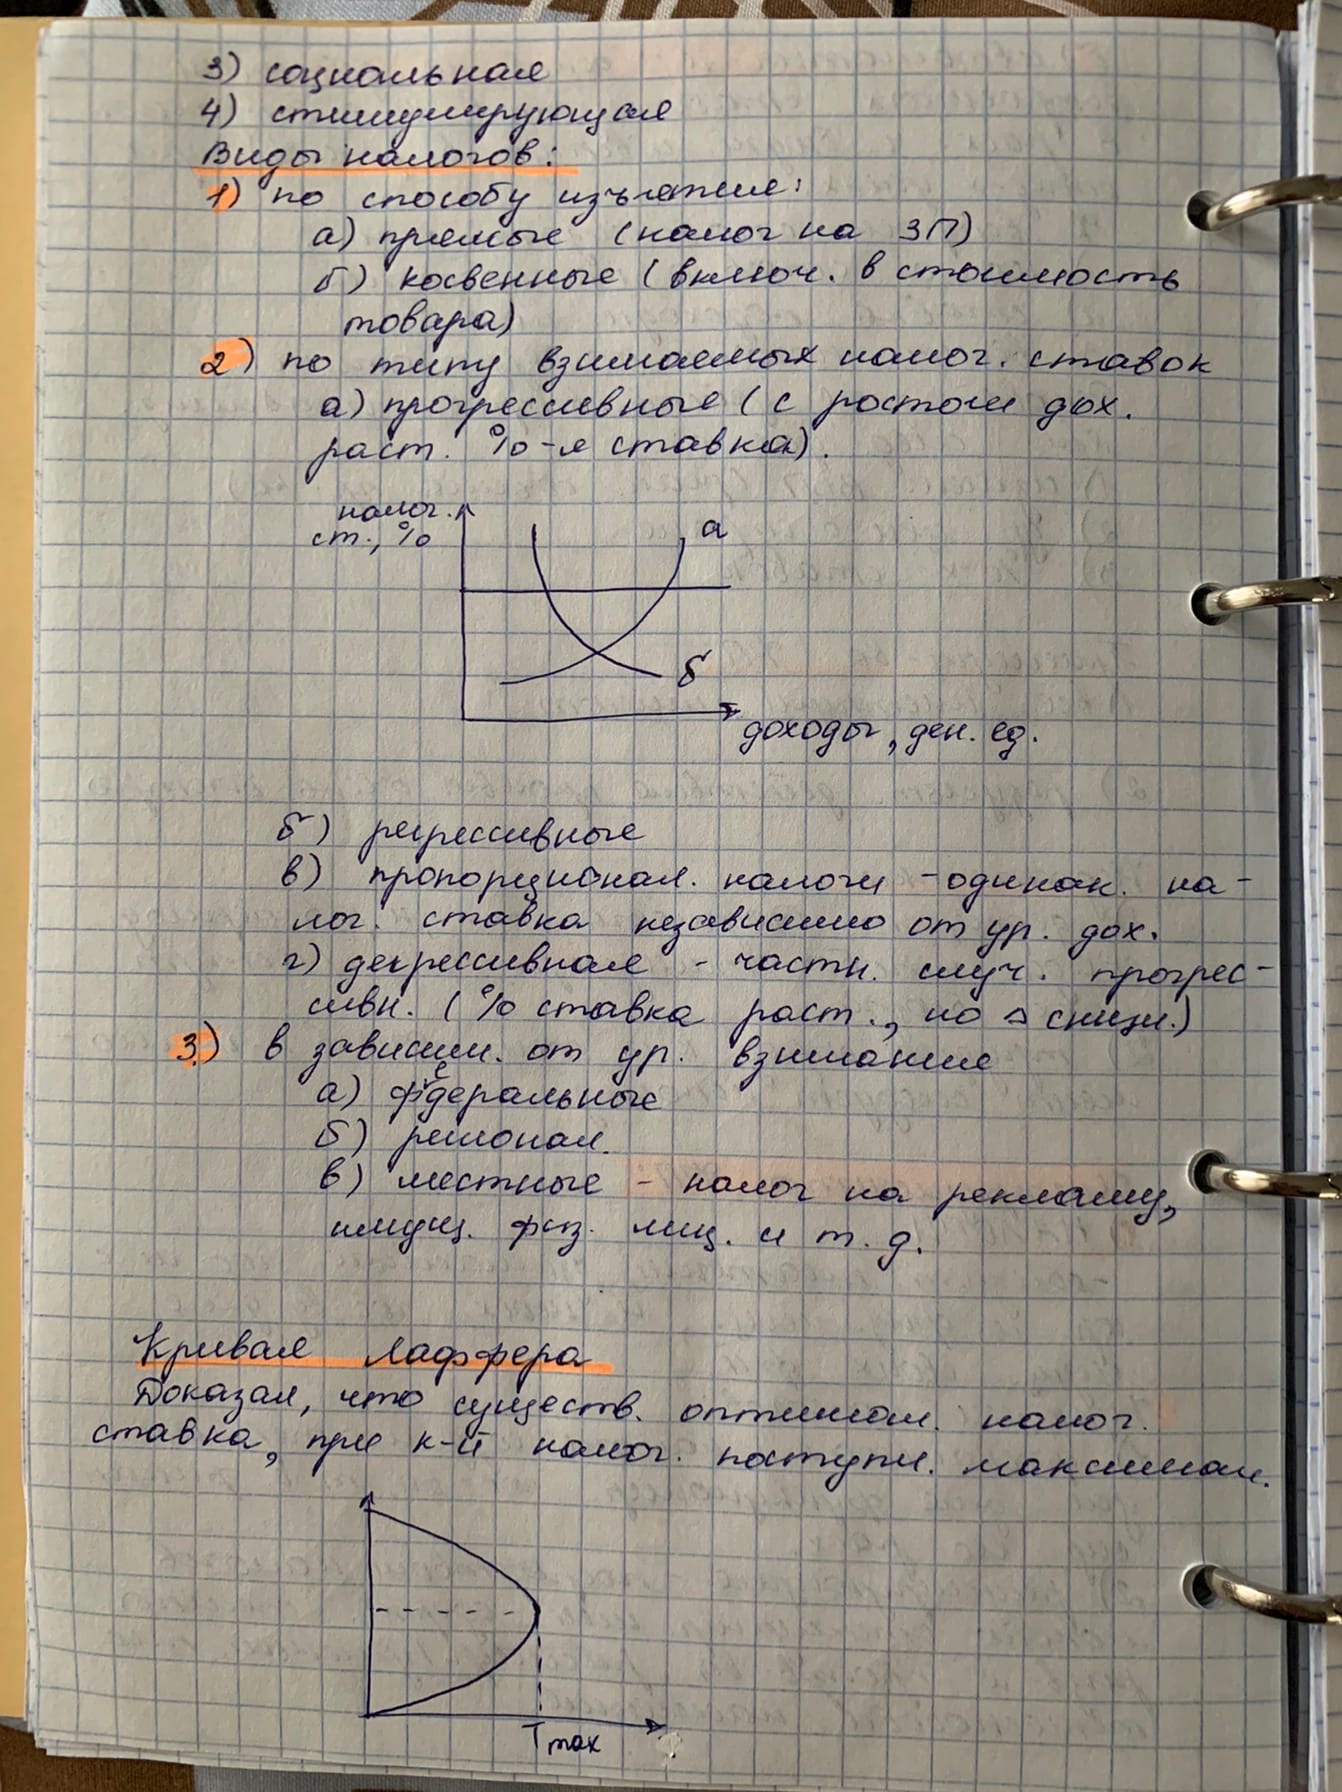 3) социальная
4) стимулирующая
Виды налогов:
1) по способу изъятия:
а) прямые (налог на ЗП)
б) косвенные (включ. в стоимость
товара)
2) по типу взимаемых налог. ставок
а) прогрессивные (с ростом дох.
раст. %-я ставка).
налог.
ст., %
а
б
доходы, ден. ед.
б) регрессивные
в) пропорционал. налоги - одинак. на-
лог. ставка независимо от ур. дох.
г) дегрессивная - частн. случ. прогрес-
сивн. (% ставка раст., но △ сниж.)
3) в зависим. от ур. взимания
а) федеральные
б) регионал.
в) местные - налог на рекламу,
имущ. физ. лиц. и т. д.
Кривая Лаффера
Доказал, что существ. оптимал. налог.
ставка, при к-й налог. поступл. максимал.
Tmax